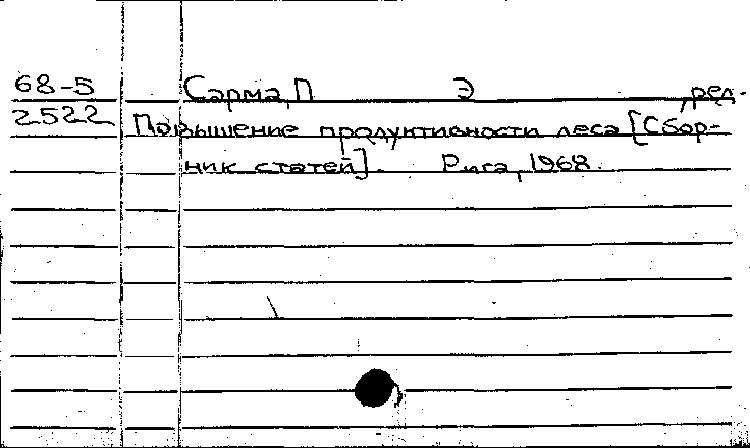 68-5 Сарма, П Э , ред.
2522 Повышение продуктивности леса [Сбор-
ник статей]. Рига, 1968.